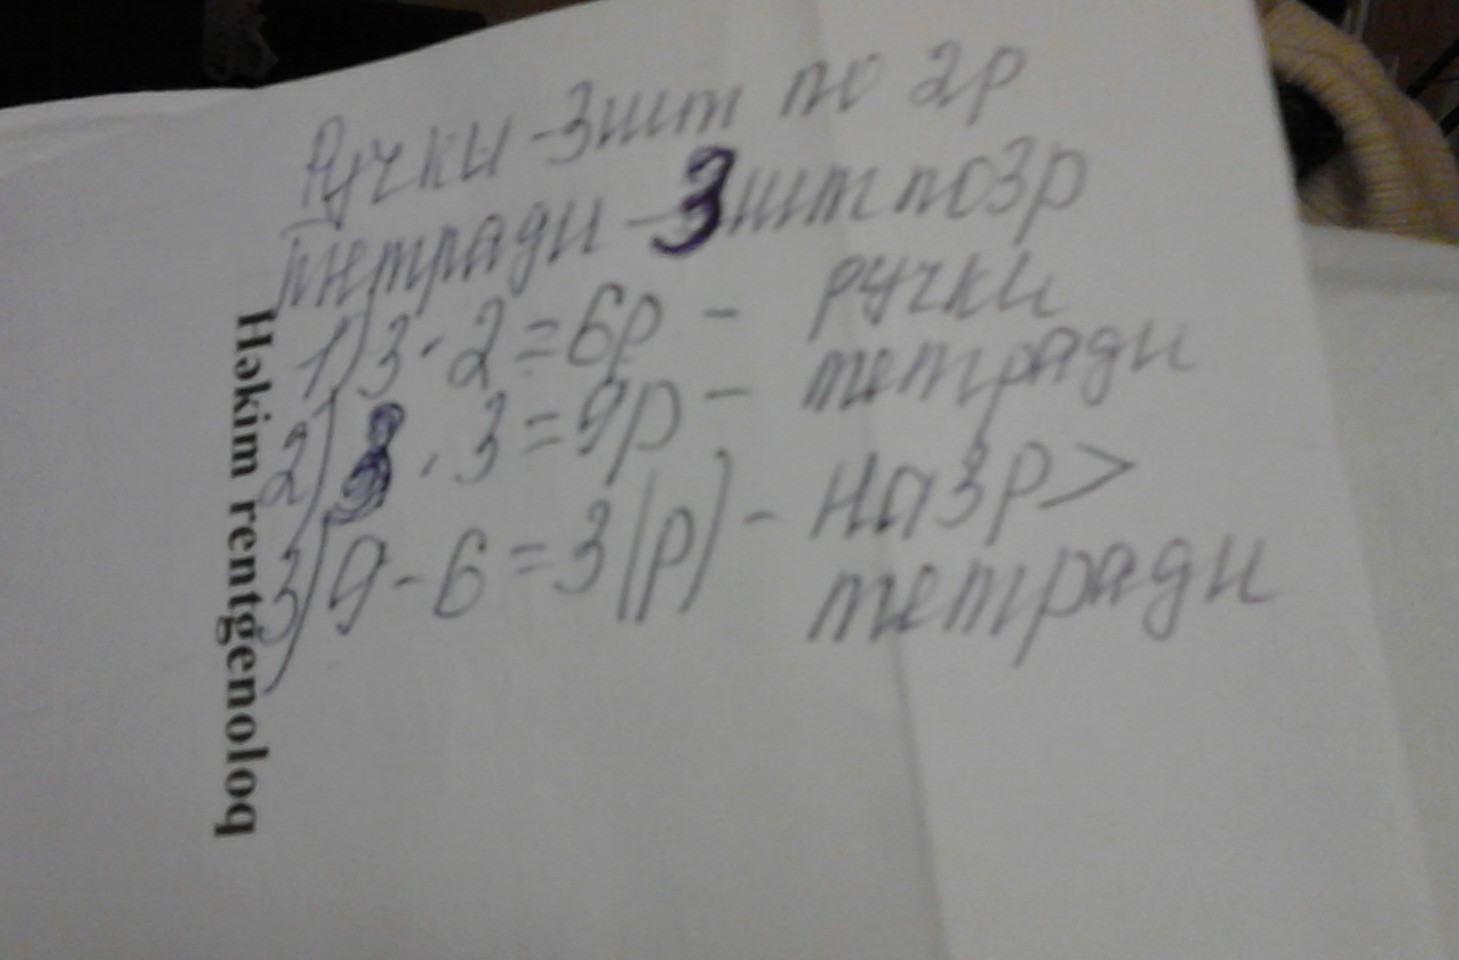 Ручки - 3 шт по 2р
тетради - 3 шт по 3р
1) 3 · 2 = 6р - ручки
2) 3 · 3 = 9р - тетради
3) 9 - 6 = 3 (р) - на 3р >
тетради
Həkim rentgenoloq